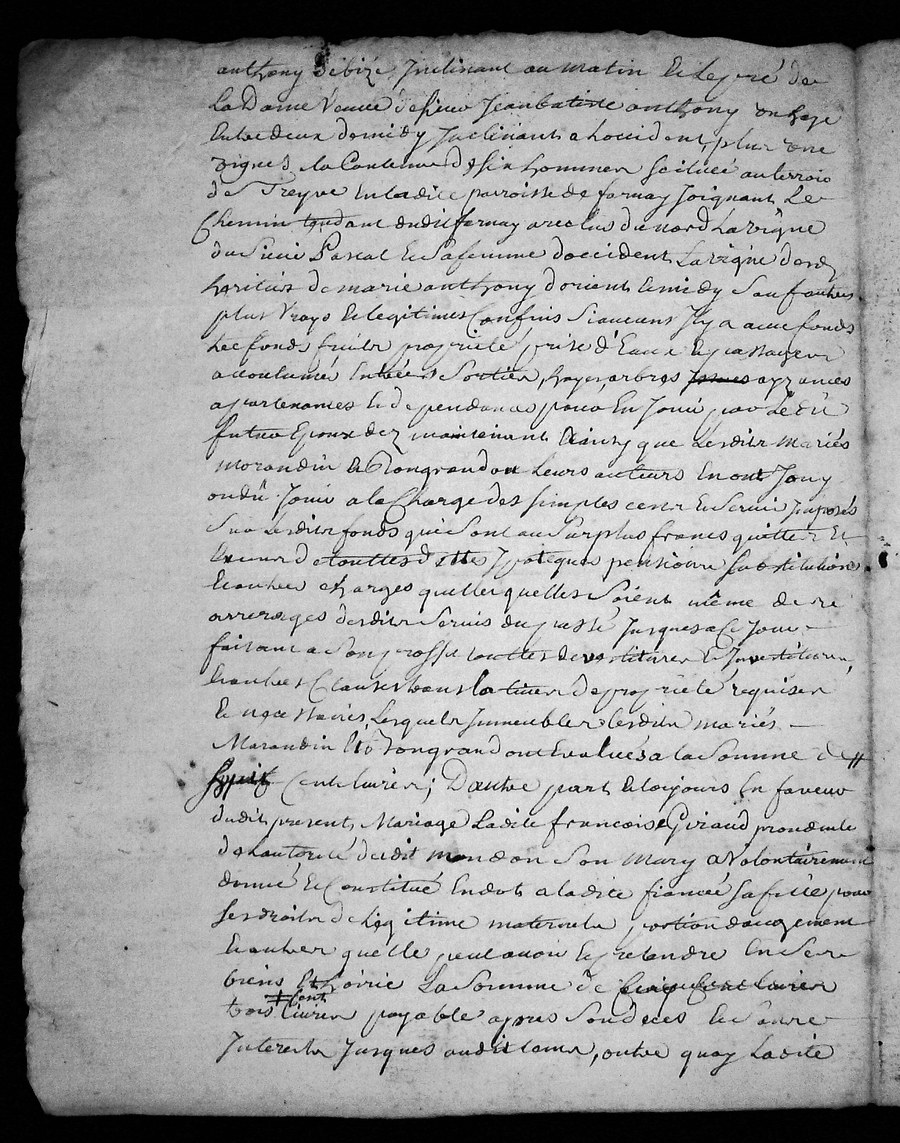 anthony de bize Inclinant au matin & le pré de
La Dame Veuve de sieur Jeanbatiste anthony
Entre deux de midy Inclinant a loccident, plus une
vigne de la Contenue de six hommes scituée au terroir
de Treyve En ladite parroisse de farnay Joignant Le
Chemin tendant dudit farnay du nord La vigne
du Sieur Pascal & sa femme doccident La vigne des
heritiers de marie anthony dorient & midy Sauf autres
plus vrays & legitimes Confins Si aucuns Il y a avec fonds
tresfonds fruits proprieté prise d'Eaux & passages
accoutumés Entrées Sorties, hayes, arbres ayzances
apartenances & dependances pour En Jouir par Le dit
futur Epoux dez maintenant & ainsy que Lesdits Mariés
Morandin & Tongrand ou Leurs auteurs En ont Jouy
ou dû Jouir a la Charge des simples cens & Servis Imposés
Sur Lesdits fonds qui Sont au Surplus francs quittes &
de touttes dettes Ipoteques pensions Substitutions
& autres charges quelles quelles Soient même de
arrerages desdits Servis du passé Jusques a Ce Jour
faisant a Son proffit touttes devestitures & Investitures,
& autres Clauses translatives de proprieté requises
& necessaires, Lesquels Immeubles Lesdits mariés
Marandin & Tongrand ont Evalués a la Somme de
Cent Livres; Dautre part & toujours En faveur
dudit present Mariage Ladite francoise Giraud
de Lautorité dudit son Mary a Volontairement
donné & Constitué En dot a ladite fiancée sa fille pour
Ses droits de Legitime maternels, portion daugment
& autres quelle peut avoir & pretendre En Ses
biens & hoirie La Somme de Cinq Cent Livres
trois Cent Livres payable apres Son deces & Sans
Interests Jusques audit tems, outre quoy Ladite